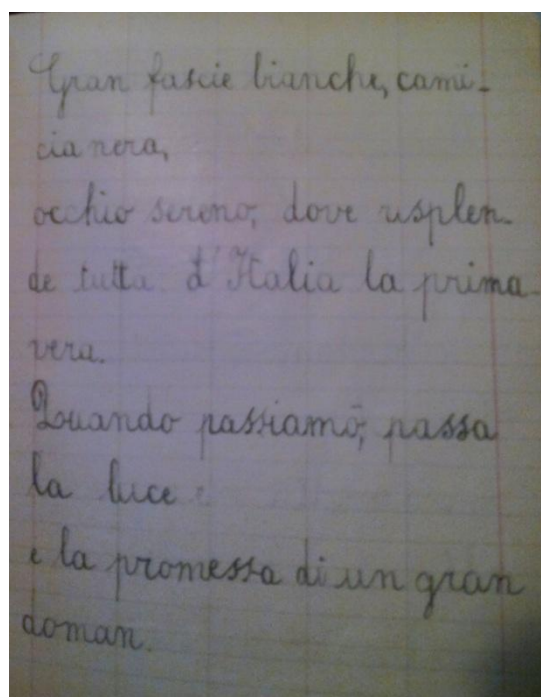 Gran fascie bianche, cami-
cia nera,
occhio sereno, dove risplen-
de tutta d'Italia la prima-
vera.
Quando passiamo, passa
la luce
e la promessa di un gran
doman.